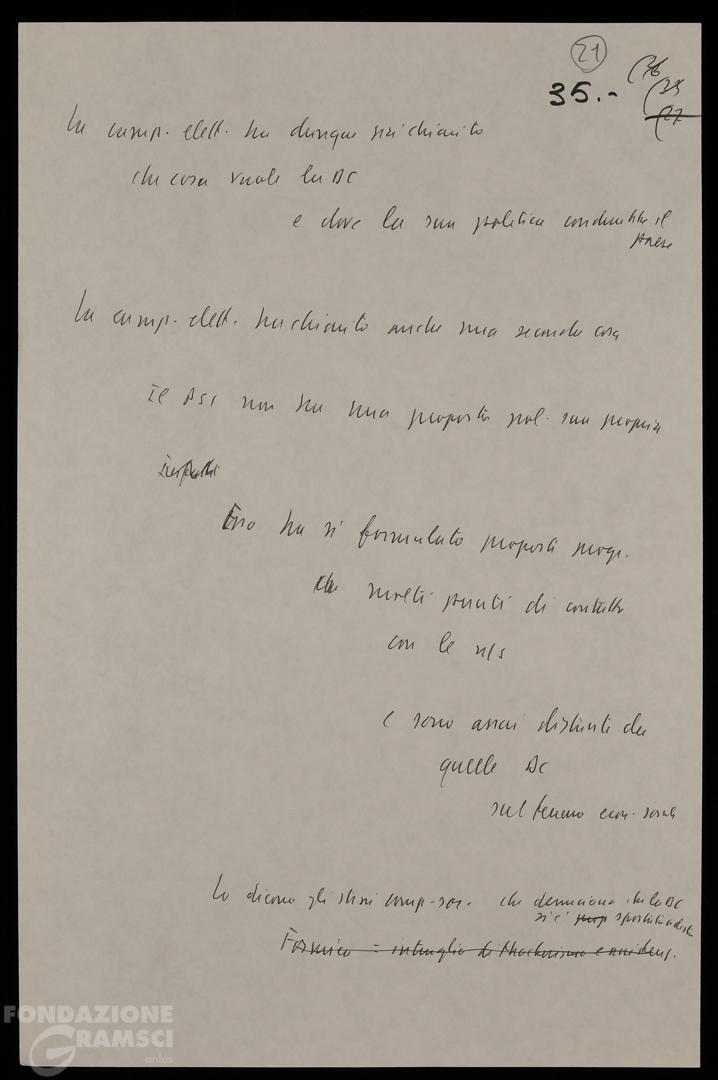 21
35.-
(36
(35
(27
La camp. elett. ha dunque
che cosa vuole la DC
e dove la sua politica condurrebbe il
paese
La camp. elett. ha chiarito anche una seconda cosa
Il PSI non ha una proposta pol. sua propria
Esso ha sì formulato proposte progr.
che molti punti di contatto
con le n/s
e sono assai distinte da
quelle DC
sul terreno econ. sociale
Lo dicono gli stessi comp. soc. che denunciano che la DC
si è spostata a destra
Formica = intruglio di thatcherismo e
FONDAZIONE
GRAMSCI
onlus